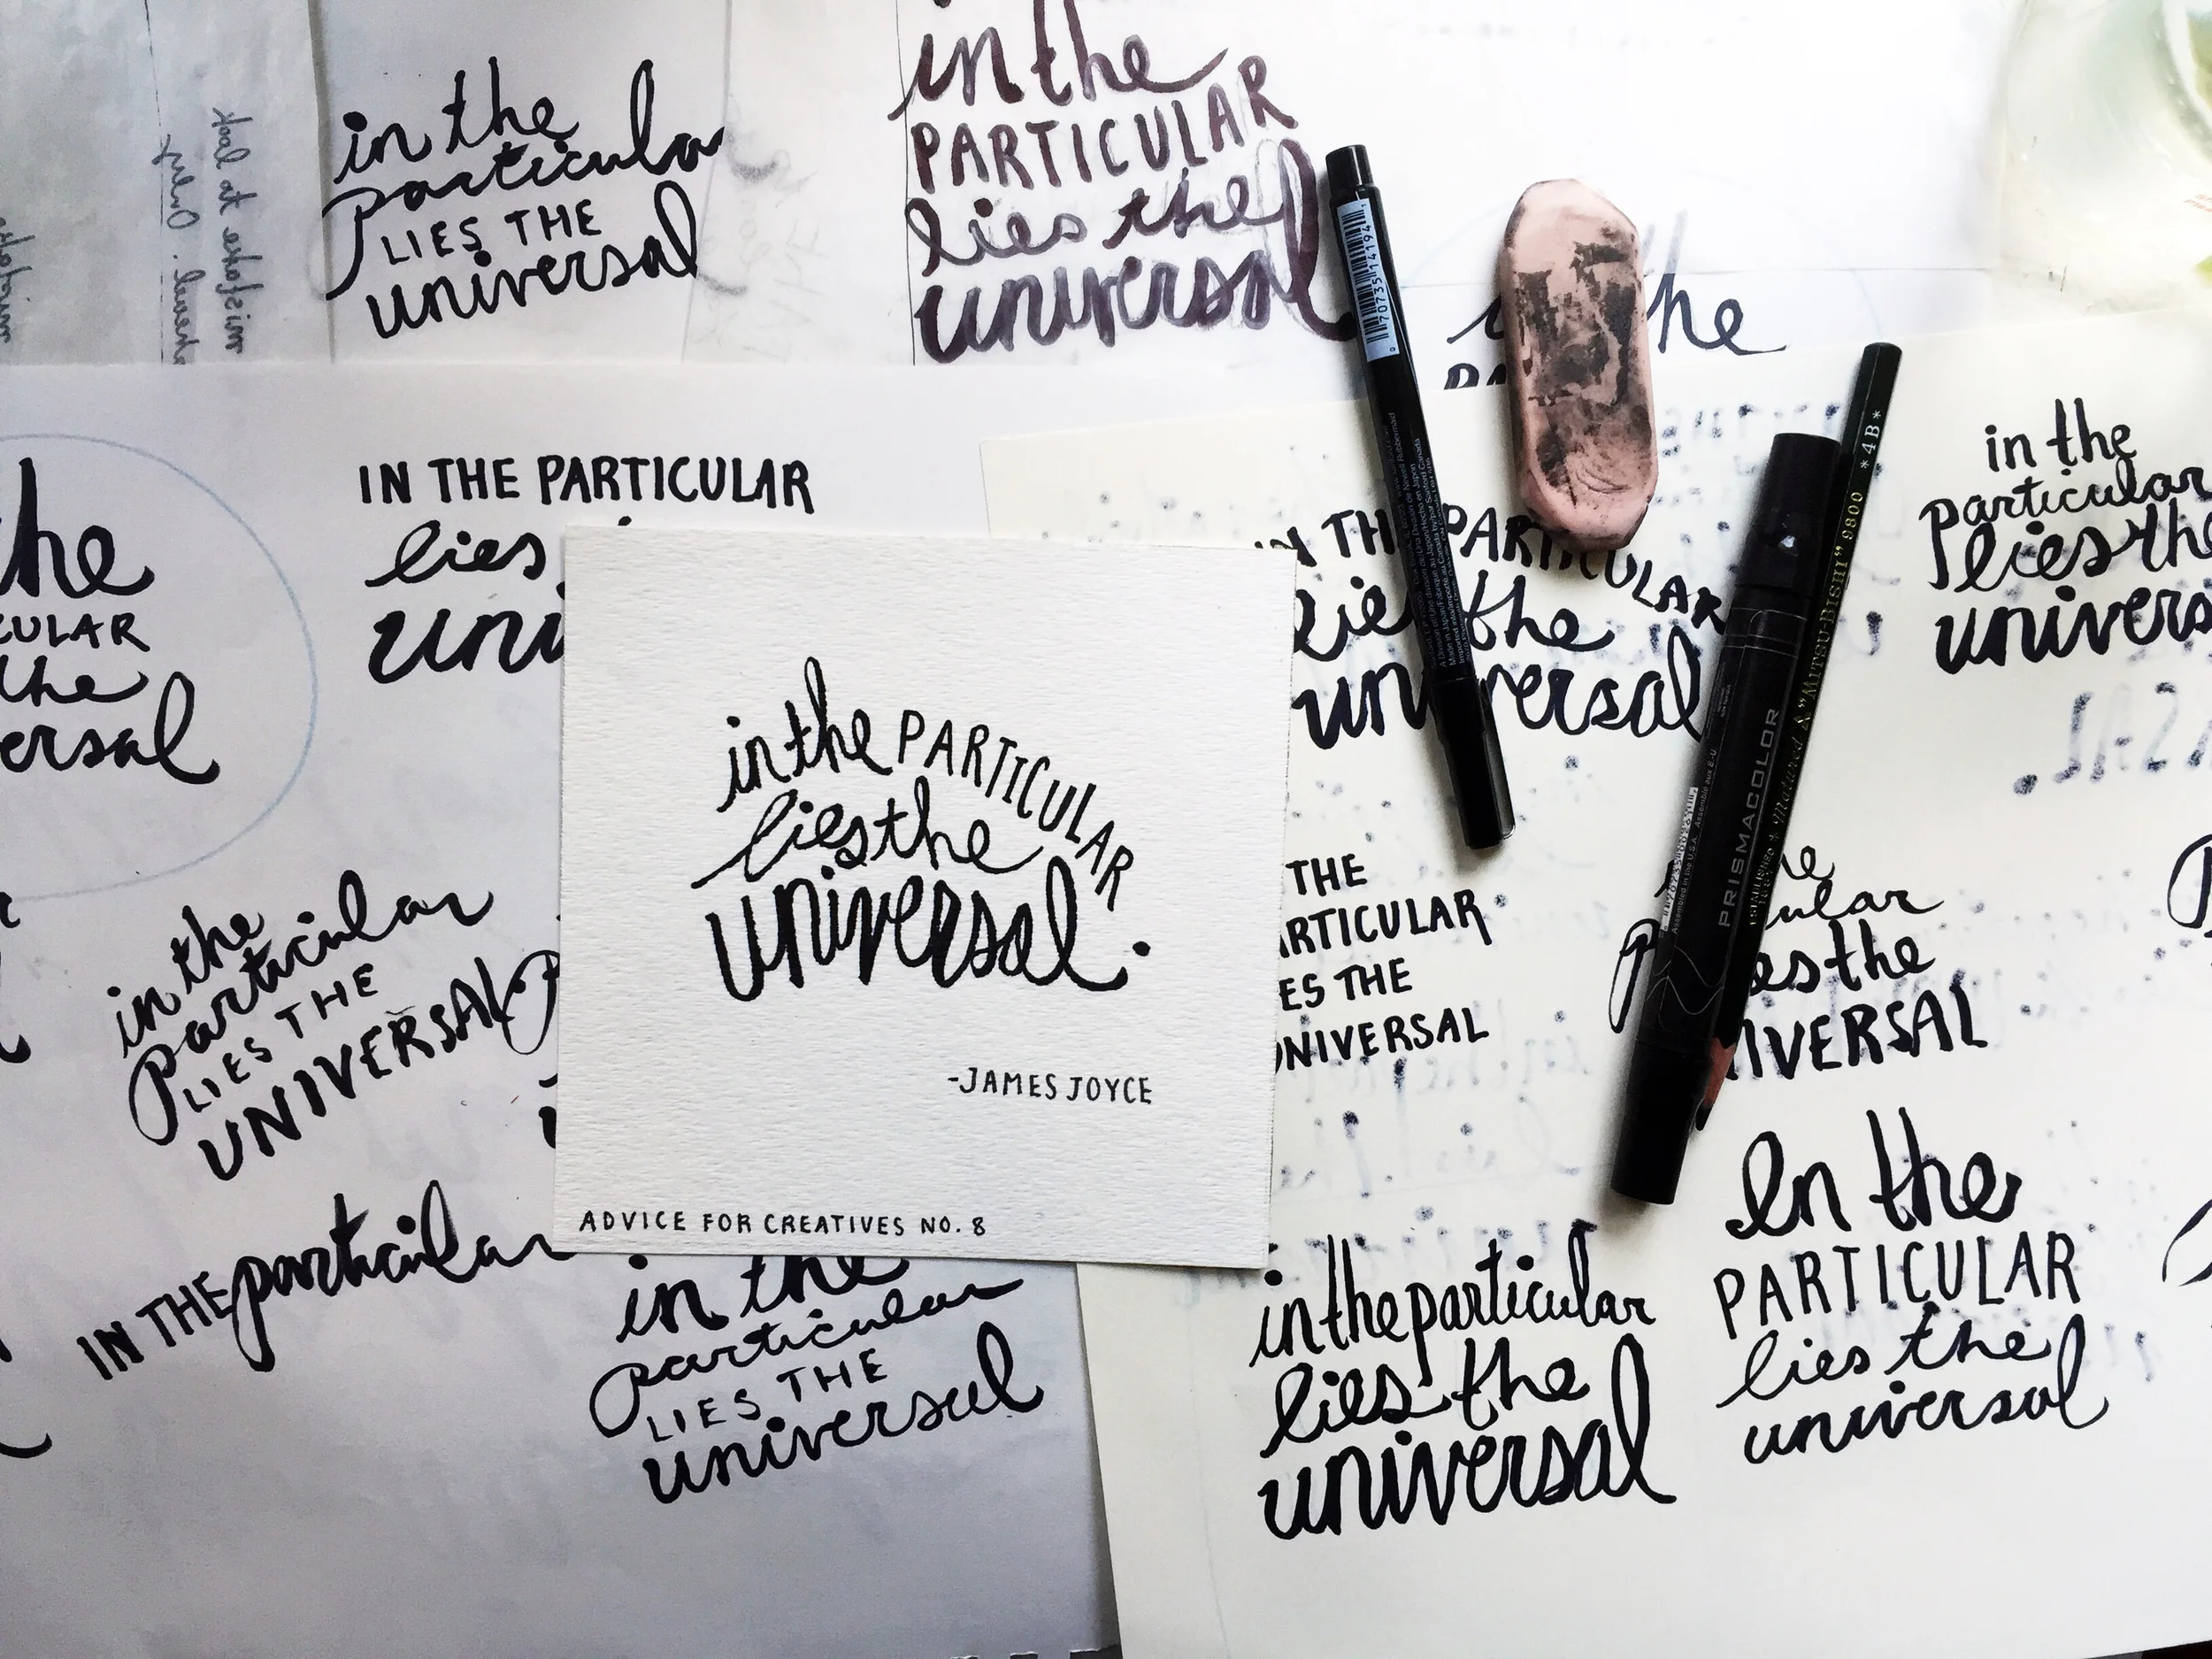 in the
particular
LIES THE
universal
in the
PARTICULAR
lies the
universal
the
IN THE PARTICULAR
lies
uni
he
CULAR
the
ersal
in the PARTICULAR
lies the
universal.
-JAMES JOYCE
ADVICE FOR CREATIVES NO. 8
IN THE PARTICULAR
lies the
universal
in the
particular
lies the
univers
in the
particular
LIES THE
UNIVERSAL
THE
ARTICULAR
ES THE
UNIVERSAL
ular
es the
IVERSAL
IN THE particular
in the
particular
LIES THE
universal
in the particular
lies the
universal
In the
PARTICULAR
lies the
universal
0 70735 14194 1
PRISMACOLOR
"MITSU-BISHI" 9800 *4B*